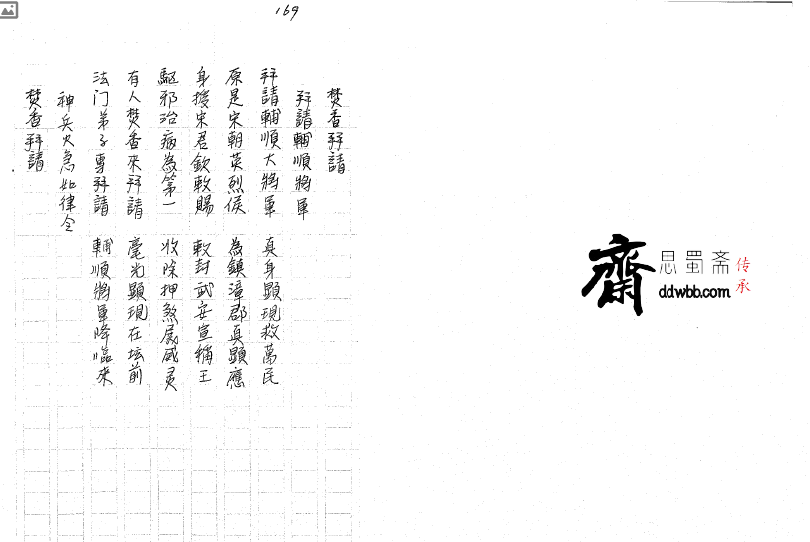 169
焚香拜請
拜請輔順將軍
拜請輔順大將軍 真身顯現救萬民
原是宋朝英烈侯 為鎮漳郡真顯應
身援宋君欽敕賜 敕封武安宣稱王
駆邪治病為第一 收除押煞展威灵
有人焚香來拜請 毫光顯現在坛前
法门弟子專拜請 輔順將軍降臨來
神兵火急如律令
焚香拜請
齋
思蜀斋
ddwbb.com
传承